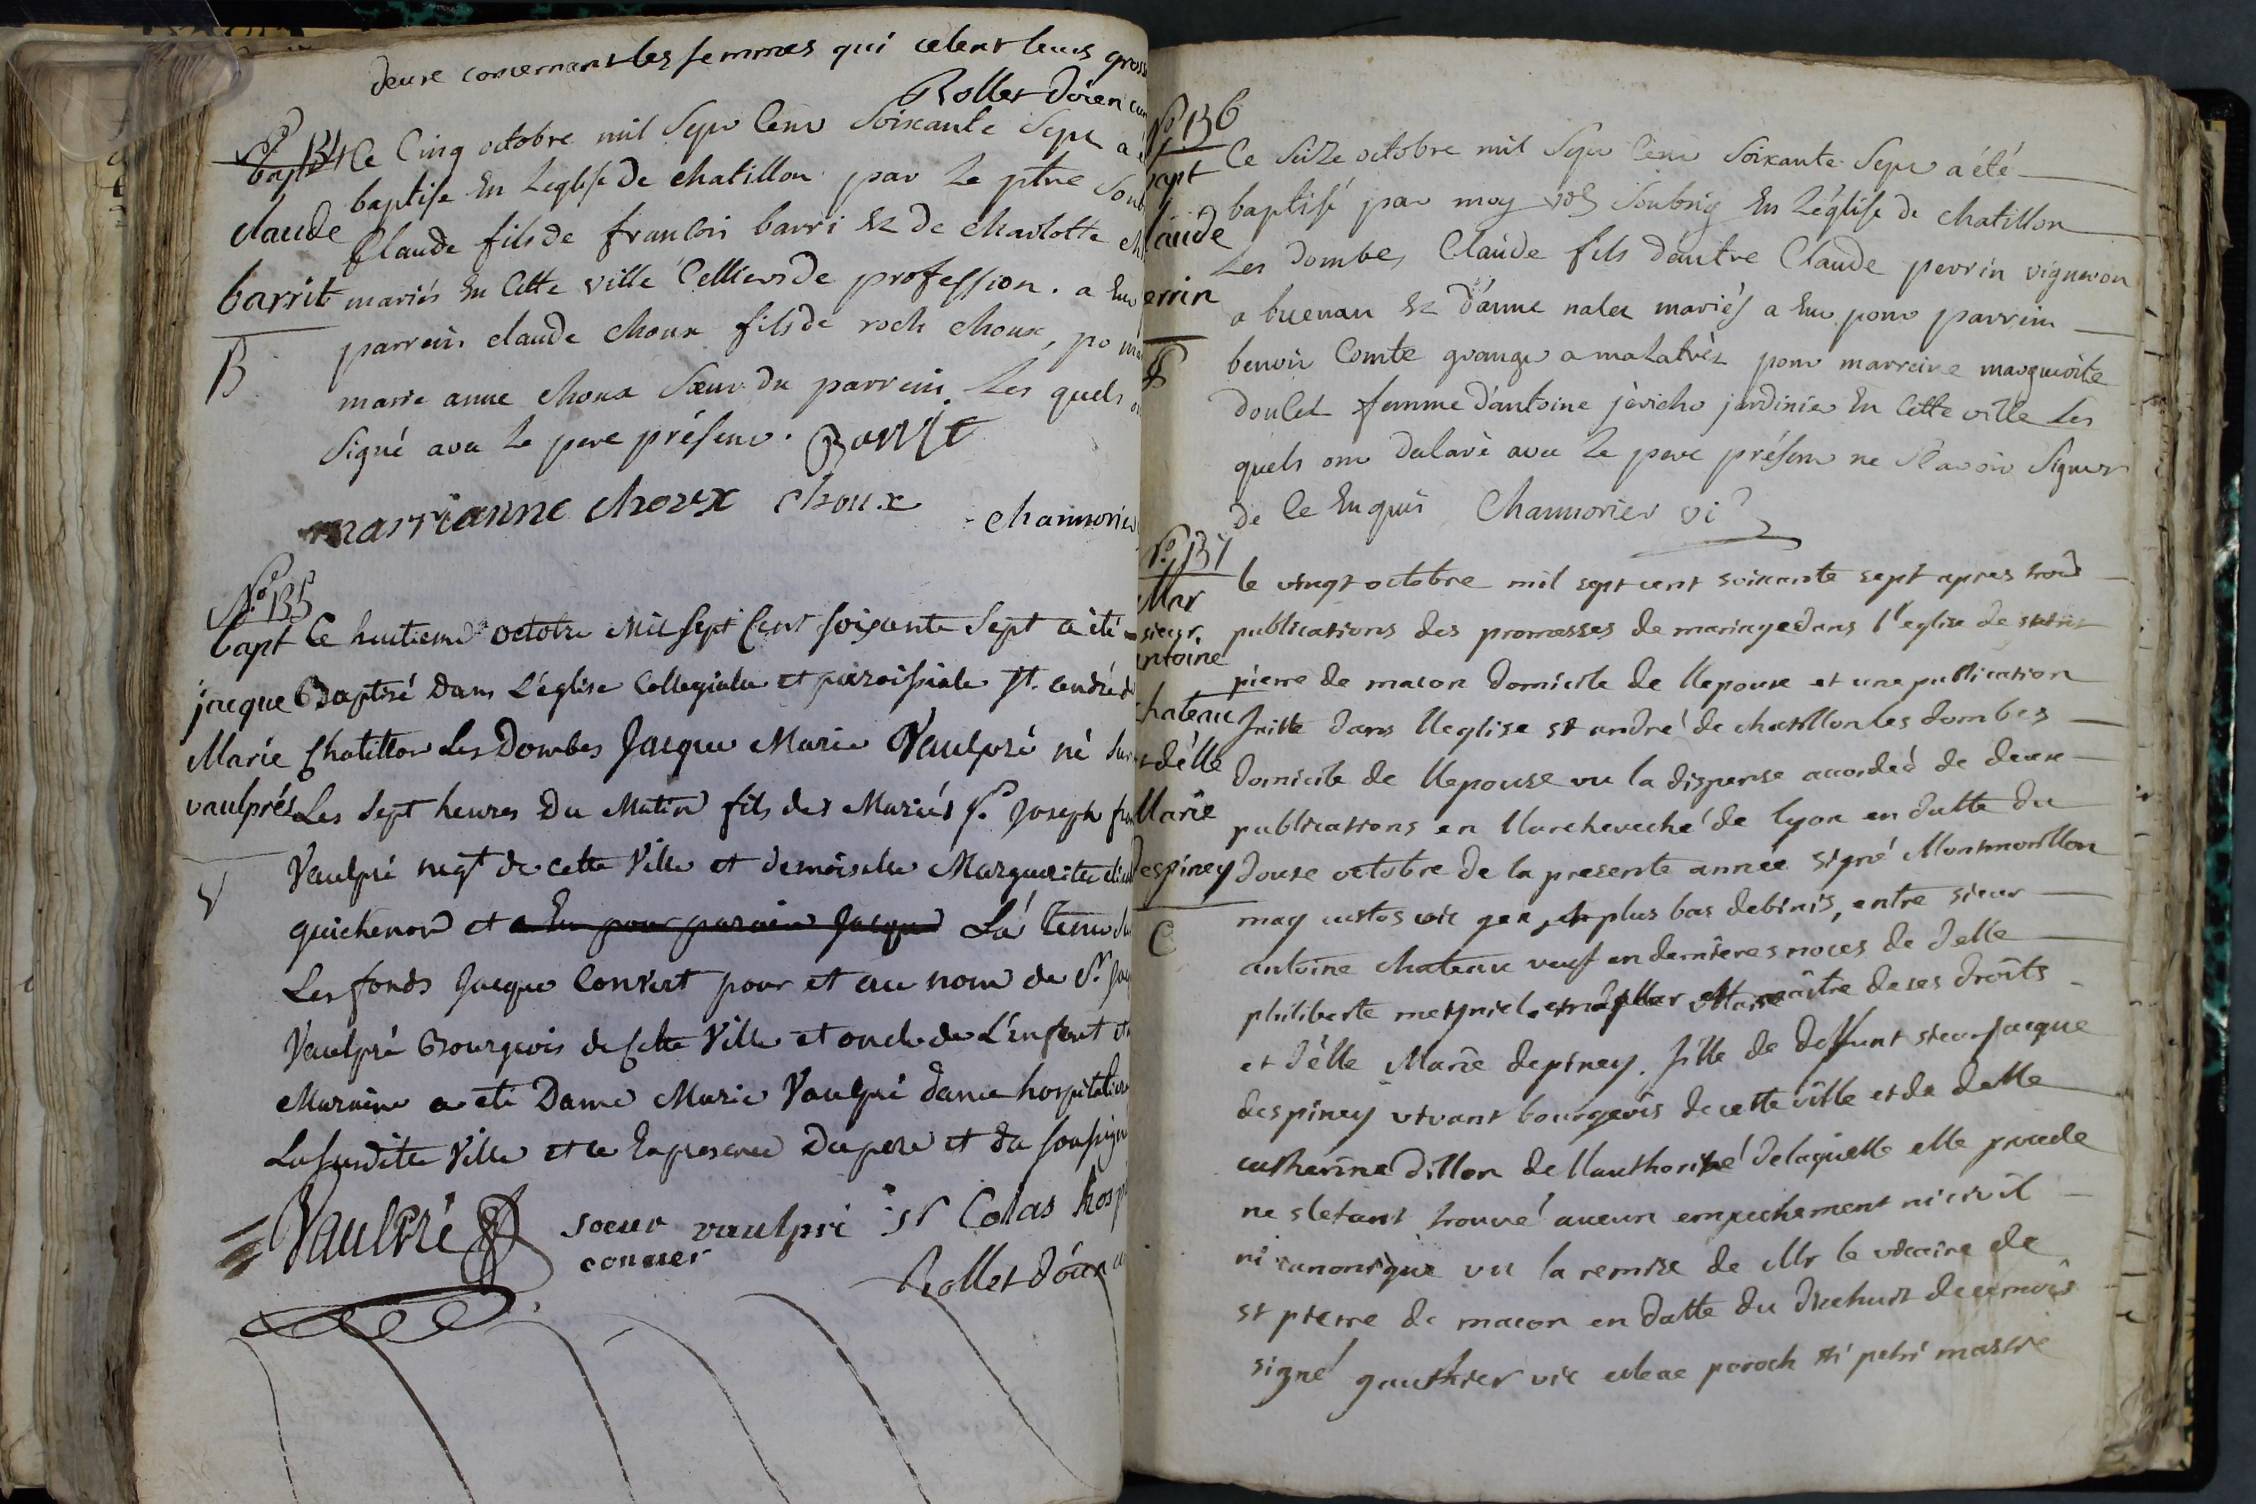 deux concernant les femmes qui celent leurs gross
Rollet doïen cur
N° 134
bapt
claude
barrit
B
Ce Cinq octobre mil Sept Cent Soixante Sept a
baptise En Leglise De chatillon par Le ptre Soub
Claude fils de francois barri Et de charlotte
mariés En Cette ville Celliers de profession . a Eu
parrein claude choux fils de roch choux, po
marie anne choux Sœur du parrein Les quels
Signé avec Le pere présent . Barrit
marrianne choux choux
chamorier
N° 135
bapt
jacque
Marie
vaulprés
V
Ce huitieme octobre Mil sept Cent soixante Sept a été
Baptisé Dans L'église Collegiale et paroissiale St. andré d
Chatillon Les Dombes Jacque Marie Vaulpré né sur
Les Sept heures Du Matin fils des Mariés Sr. Joseph fra
Vaulpré negt de cette Ville et demoiselle Marguerite
guichenon et a Eu pour parain Jacque L'a tenu su
Les fonds Jacque Convert pour et au nom de Sr. Jac
Vaulpré Bourgeois de Cette Ville et oncle de L'enfant et
Maraine a eté Dame Marie Vaulpré dame hospitaliere
La susdite Ville et ce En presence Du pere et du sousigne
Vaulpré
soeur vaulpri sr Colas hosp
conver
Rollet doïen
N° 136
bapt
laude
errin
Ce Seize octobre mil Sept Cent Soixante Sept a été
baptisé par moy vic Soubsig En L'église de chatillon
Les Dombes Claude fils d'autre Claude perrin vigneron
a buenan Et d'anne nalet mariés a Eu pour parrein
benoit Comte granger a malatrès pour marreine marguerite
doulet femme d'antoine jéricho jardinier En Cette ville Les
quels ont déclaré avec Le pere présent ne Scavoir Signer
de Ce Enquis Chamorier vi
N° 137
Mar
sieur
antoine
chateau
et délle
Marie
despiney
C
le vingt octobre mil sept cent soixante sept apres trois
publications des promesses de mariage dans l'eglise de saint
pierre de macon domicile de l'epoux et une publication
faitte dans l'eglise st andré de chatillon les dombes
domicile de l'epouse vu la dispense accordeé de deux
publications en l'archeveché de lyon en datte du
douse octobre de la presente année signé Montmorillon
may custos vic gen, et plus bas debinis, entre sieur
antoine chateau veuf en dernieres noces de délle
philiberte meyniel maître de ses droits
et délle Marie depiney fille de deffunt sieur jacque
despiney vivant bourgeois de cette ville et de delle
catherine dillon de l'authorité de laquelle elle procede
ne s'etant trouvé aucun empechement ni civil
ni canonique vu la remise de Mr le vicaire de
st pierre de macon en datte du dixhuit de ce mois
signé gauthier vic paroch sti petri mastic